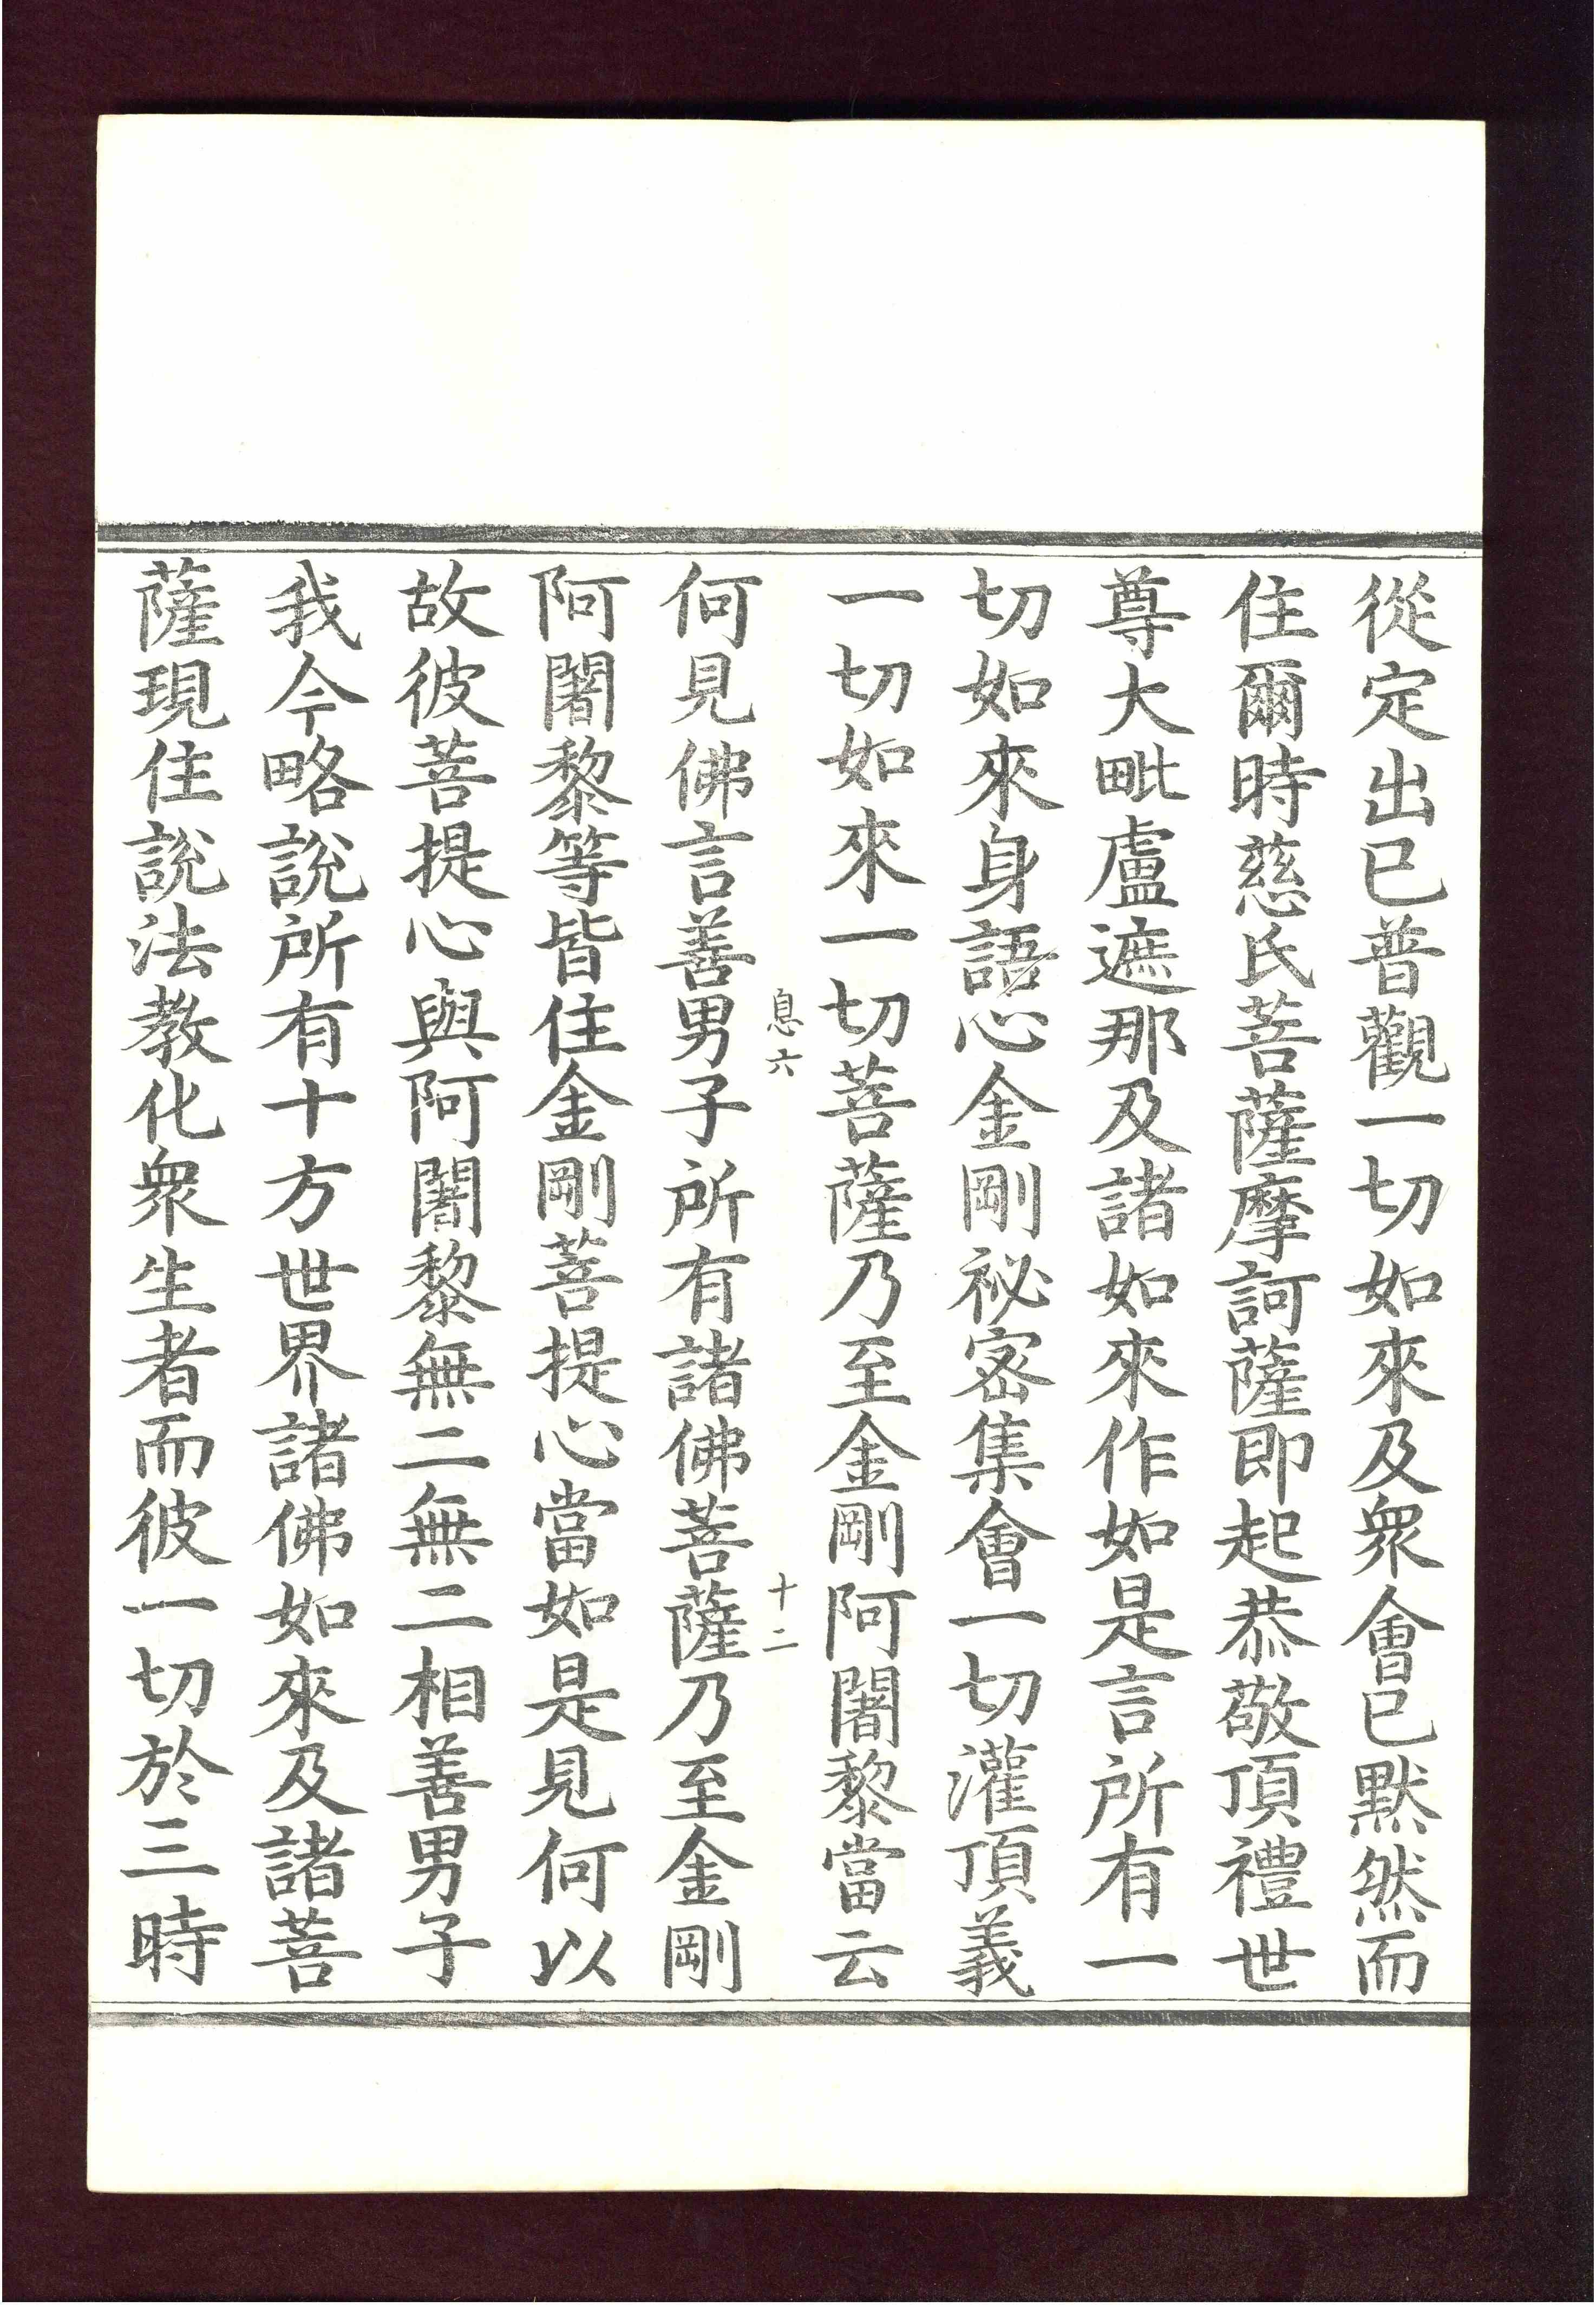 從定出已普觀一切如來及衆會已默然而
住爾時慈氏菩薩摩訶薩即起恭敬頂禮世
尊大毗盧遮那及諸如來作如是言所有一
切如來身語心金剛祕密集會一切灌頂義
一切如來一切菩薩乃至金剛阿闍黎當云
息六 十二
何見佛言善男子所有諸佛菩薩乃至金剛
阿闍黎等皆住金剛菩提心當如是見何以
故彼菩提心與阿闍黎無二無二相善男子
我今略說所有十方世界諸佛如來及諸菩
薩現住說法教化衆生者而彼一切於三時